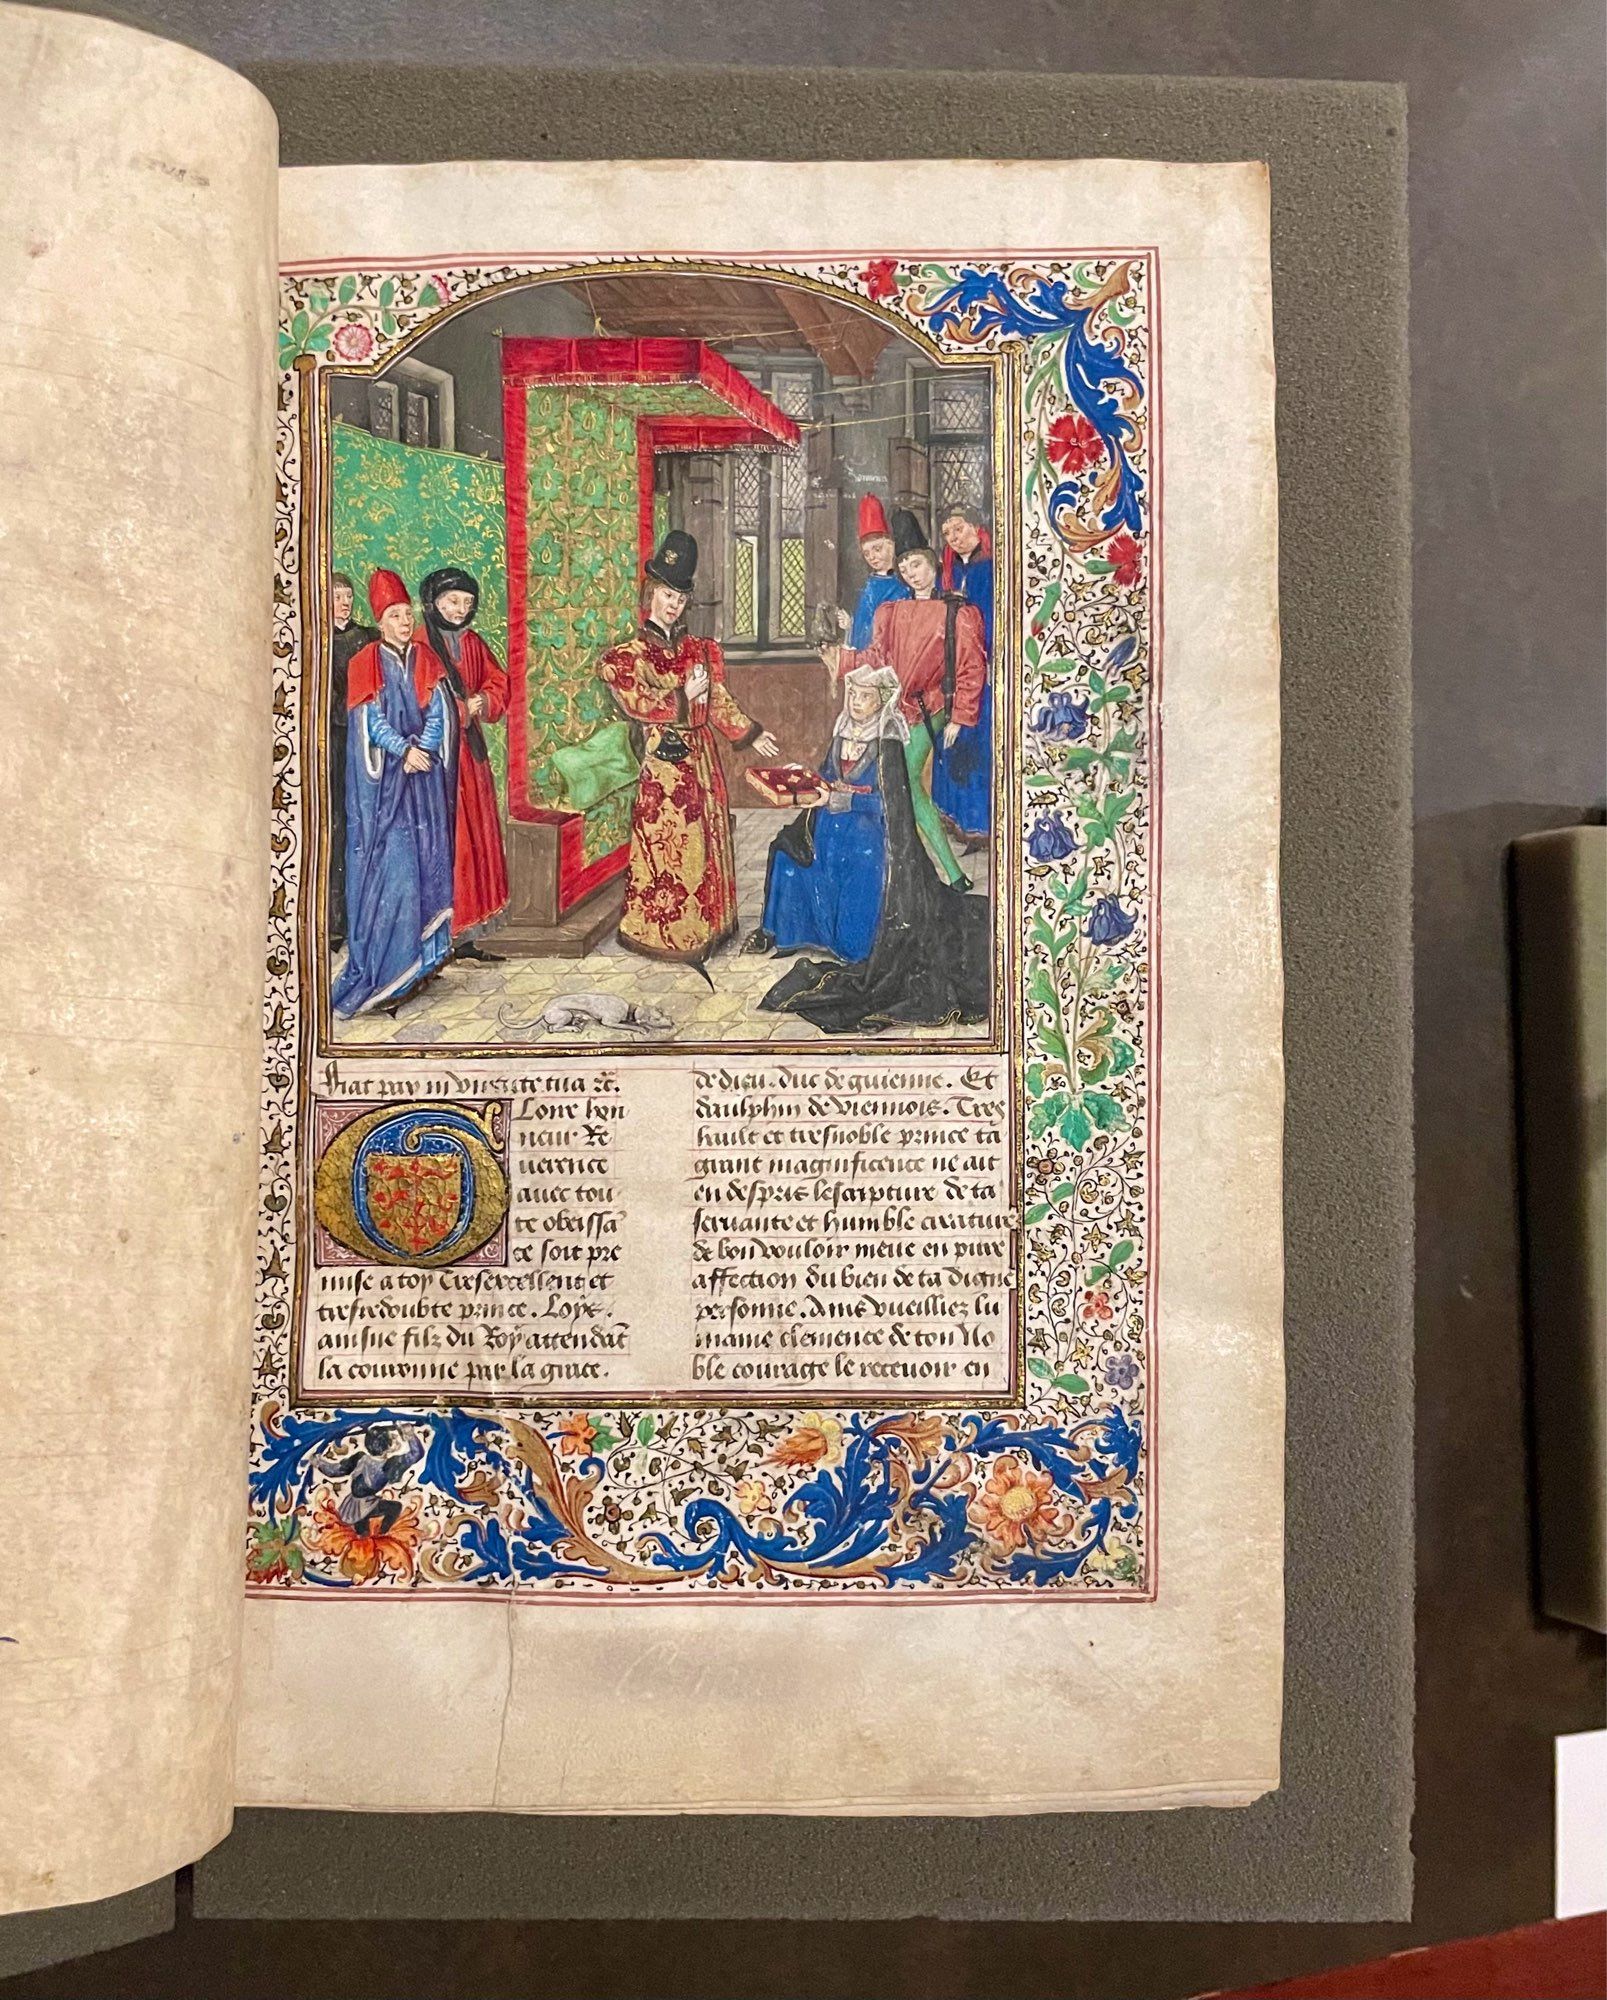 Fiat pax in virtute tua &c.
Gloire hon
neur Re
uerence
auec tou
te obeissā
ce soit pre
mise a toy Tresexcellent et
tresredoubte prince. Loys.
aisne filz du Roy attendāt
la couronne par la grace.
de dieu. duc de guienne. Et
daulphin de viennois. Tres
hault et tresnoble prince ta
grant magnificence ne ait
en despris lescripture de ta
seruante et humble creature
de bon vouloir meue en pure
affection du bien de ta digne
personne. Ains vueillez lu
maine clemence de ton No
ble courage le receuoir en